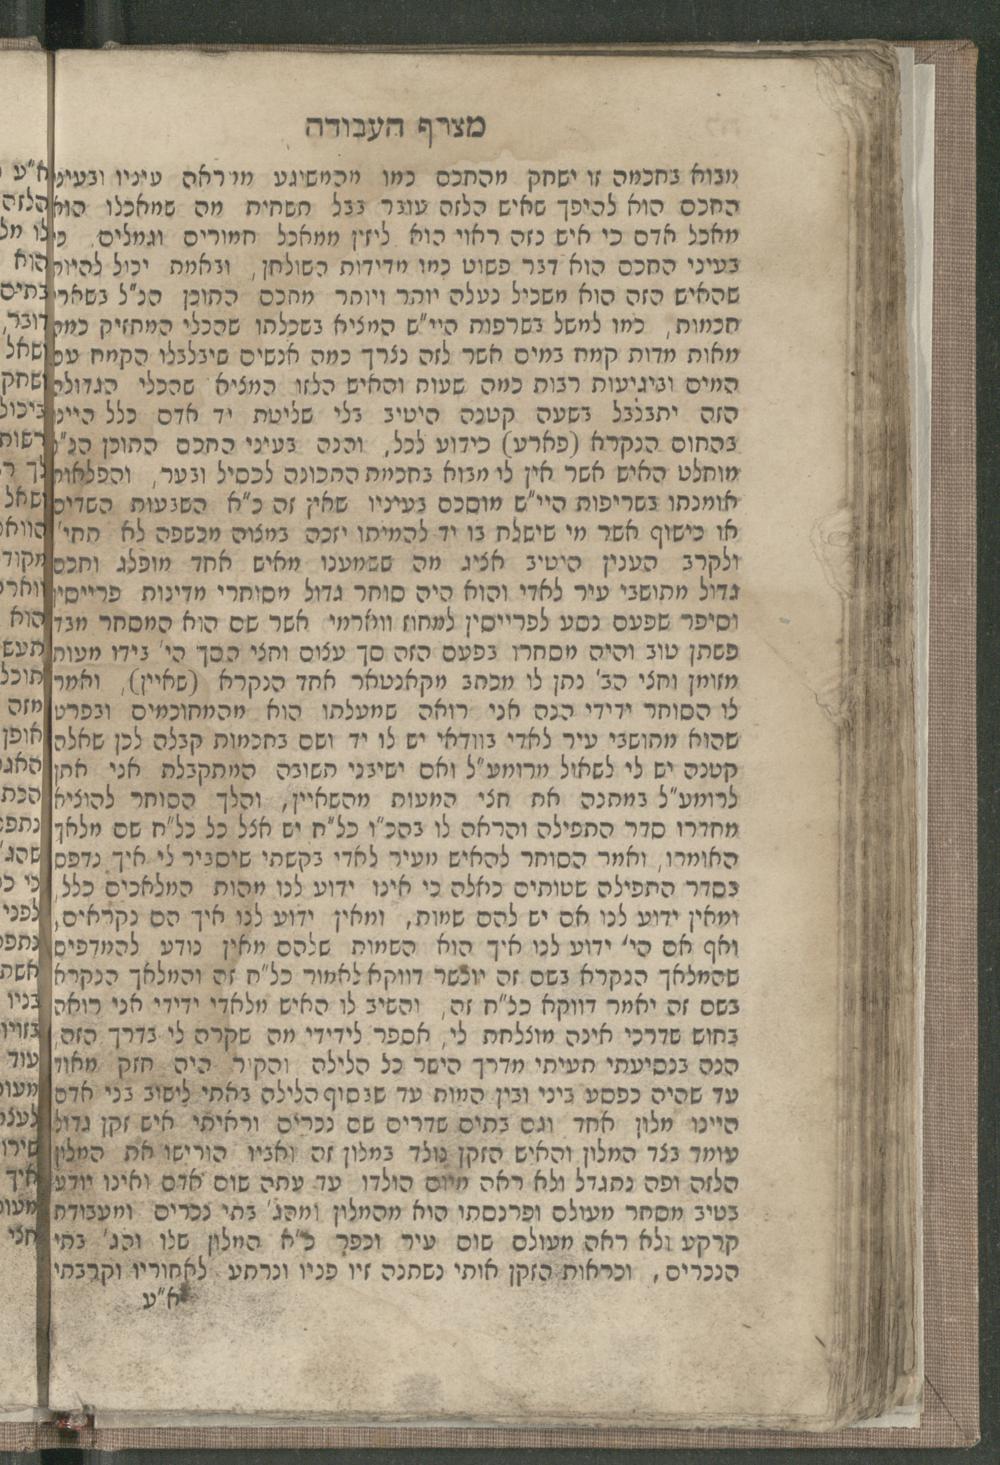 מצרף העבודה
מבוא בחכמה זו ישחק מהחכם כמו מהמשיגע מוראה עיניו ובעיני
החכם הוא להיפך שאיש הלזה עובר בבל תשחית מה שמאכלו הוא
מאכל אדם כי איש כזה ראוי הוא ליזון ממאכל חמורים וגמלים כי
בעיני החכם הוא דבר פשוט כמו מדידות השולחן, ובאמת יכול להיות
שהאיש הזה הוא משכיל נעלה יותר ויותר מחכם התוכן הנ"ל בשארי
חכמות, כמו למשל בשרפות היי"ש המציא בשכלתו שהכלי המחזיק כמה
מאות מדות קמח במים אשר לזה נצרך כמה אנשים שיבלבלו הקמח עם
המים וביגיעות רבות כמה שעות והאיש הלזו המציא שהכלי הגדולה
הזה יתבלבל בשעה קטנה היטיב בלי שליטת יד אדם כלל היינו
בהחום הנקרא (פארע) כידוע לכל, והנה בעיני החכם התוכן הנ"ל
מוחלט האיש אשר אין לו מבוא בחכמת התכונה לכסיל ובער, והפלאות
אומנתו בשריפות היי"ש מוסכם בעיניו שאין זה כ"א השבעות השדים
או כישוף אשר מי שישלח בו יד להמיתו יזכה במצוה מכשפה לא תחי'
ולקרב הענין היטיב אציג מה ששמענו מאיש אחד מופלג וחכם
גדול מתושבי עיר לאדי והוא היה סוחר גדול מסוחרי מדינות פרייסין
וסיפר שפעם נסע לפרייסין למחוז ווארמי אשר שם הוא המסחר מבד
פשתן טוב והיה מסחרו בפעם הזה סך עצום וחצי הסך הי' בידו מעות
מזומן וחצי הב' נתן לו מכתב מקאנטאר אחד הנקרא (שאיין), ואמר
לו הסוחר ידידי הנה אני רואה שמעלתו הוא מהמחוכמים ובפרט
שהוא מתושבי עיר לאדי בוודאי יש לו יד ושם בחכמות קבלה לכן שאלה
קטנה יש לי לשאול מרומע"ל ואם ישיבני תשובה המתקבלת אני אתן
לרומע"ל במתנה את חצי המעות מהשאיין, והלך הסוחר להוציא
מחדרו סדר התפילה והראה לו בהכ"ו כל"ח יש אצל כל כל"ח שם מלאך
האומרו, ואמר הסוחר להאיש מעיר לאדי בקשתי שיסביר לי איך נדפס
בסדר התפילה שטותים כאלה כי אינו ידוע לנו מהות המלאכים כלל,
ומאין ידוע לנו אם יש להם שמות, ומאין ידוע לנו איך הם נקראים,
ואף אם הי' ידוע לנו איך הוא השמות שלהם מאין נודע להמדפיס
שהמלאך הנקרא בשם זה יוכשר דווקא לאמור כל"ח זה והמלאך הנקרא
בשם זה יאמר דווקא כל"ח זה, והשיב לו האיש מלאדי ידידי אני רואה
בחוש שדרכי אינה מוצלחת לי, אספר לידידי מה שקרה לי בדרך הזה,
הנה בנסיעתי תעיתי מדרך הישר כל הלילה והקור היה חזק מאוד
עד שהיה כפסע ביני ובין המות עד שבסוף הלילה באתי לישוב בני אדם
היינו מלון אחד וגם בתים שדרים שם נכרים וראיתי איש זקן גדול
עומד בצד המלון והאיש הזקן נולד במלון זה ואביו הורישו את המלון
הלזה ופה נתגדל ולא ראה מיום הולדו עד עתה שום אדם ואינו יודע
בטיב מסחר מעולם ופרנסתו הוא מהמלון ומהג' בתי נכרים ומעבודת
קרקע ולא ראה מעולם שום עיר וכפר כ"א המלון שלו והג' בתי
הנכרים, וכראות הזקן אותי נשתנה זיו פניו ונרתע לאחוריו וקרבתי
א"ע